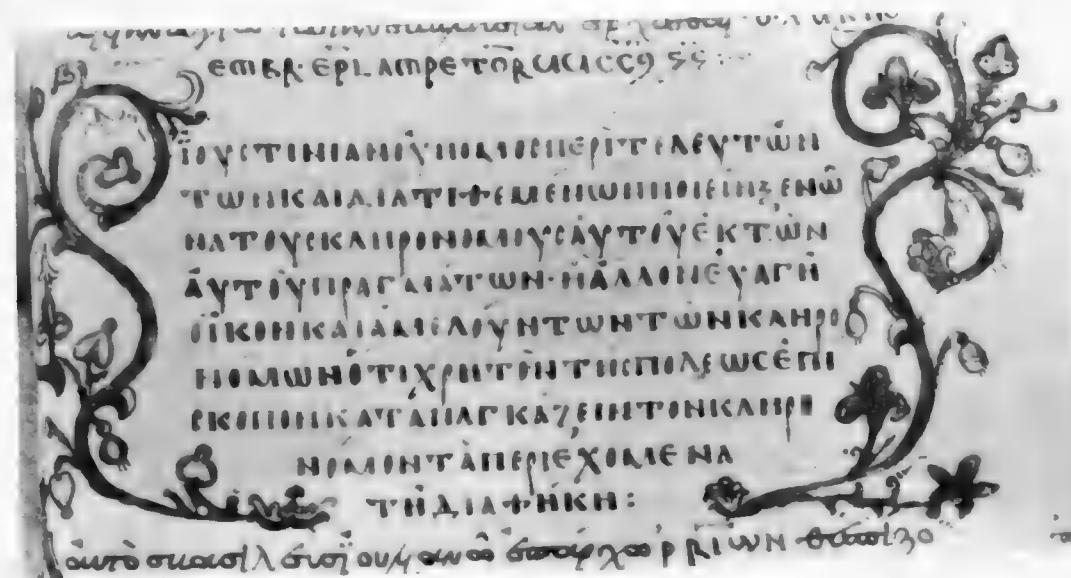 ΕΜΒR·
ΪΟΥCΤΙΝΙΑΝΟΥ ΝΟΜΟC ΠΕΡΙ ΤΕΛΕΥΤΩΝ
ΤΩΝ ΚΑΙ ΔΙΑΤΙΘΕΜΕΝΩΝ ΠΟΙΕΙΝ ΞΕΝΩ
ΝΑ ΤΟΥC ΚΛΗΡΟΝΟΜΟΥC ΑΥΤΟΥ ΕΚ ΤΩΝ
ΑΥΤΟΥ ΠΡΑΓΜΑΤΩΝ· Η ΑΛΛΟΝ ΕΥΑΓΗ
ΟΙΚΟΝ ΚΑΙ ΑΜΕΛΟΥΝΤΩΝ ΤΩΝ ΚΛΗΡΟ
ΝΟΜΩΝ ΟΤΙ ΧΡΗ ΤΟΝ ΤΗC ΠΟΛΕΩC ΕΠΙ
CΚΟΠΟΝ ΚΑΤΑΝΑΓΚΑΖΕΙΝ ΤΟΝ ΚΛΗΡΟ
ΝΟΜΟΝ ΤΑ ΠΕΡΙΕΧΟΜΕΝΑ
ΤΗ ΔΙΑΘΗΚΗ:
αὐτὸς βασιλεὺς ἰουλιανῶ ἐπάρχω